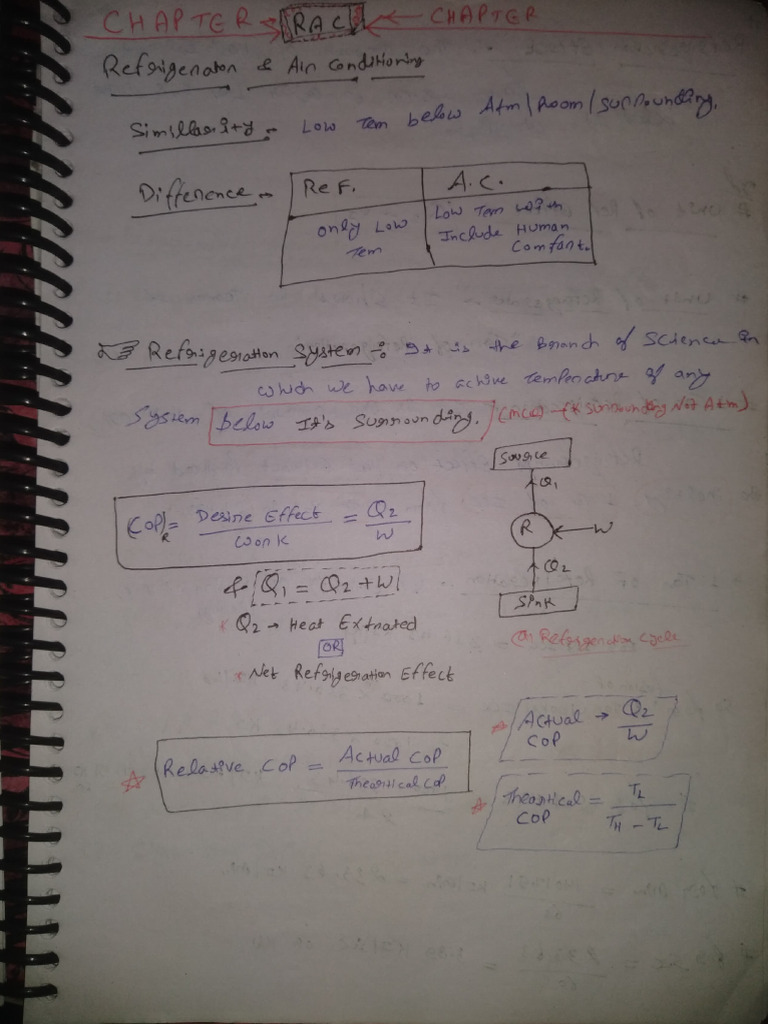 CHAPTER RAC CHAPTER
Refrigeration & Air Conditioning
Simillarity - Low Tem below Atm/Room/Surrounding.
Difference -
Ref. A.C.
Only Low Tem
Low Tem with Include Human Comfort.
Refrigeration System :- It is the Branch of Science in
which we have to achive Temperature of any
System below It's Surrounding. (MCQ) (* Surrounding Not Atm)
Source
Q1
R W
Q2
Sink
(a) Refrigeration Cycle
(COP)R = Desire Effect / Work = Q2 / W
& Q1 = Q2 + W
* Q2 → Heat Extrated
OR
* Net Refrigeration Effect
Actual COP → Q2 / W
Relative COP = Actual COP / Theoritical COP
Theoritical COP = TL / TH - TL